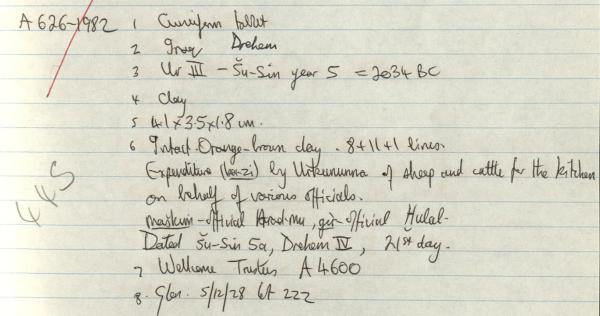 A 626-1982 1 Cuneiform tablet
2 Iraq Drehem
3 Ur III - Šu-Sin year 5 = 2034 BC
4 Clay
5 4.1 x 3.5 x 1.8 cm.
6 Intact. Orange-brown clay. 8+11+1 lines.
Expenditure (ba-zi) by Urkununna of sheep and cattle for the kitchen
on behalf of various officials.
maškim-official Arad-mu, gir-official Hulal.
Dated Šu-Sin 5a, Drehem IV, 21st day.
7 Wellcome Trustees A 4600
8. Glen. 5/12/28 lot 222
445